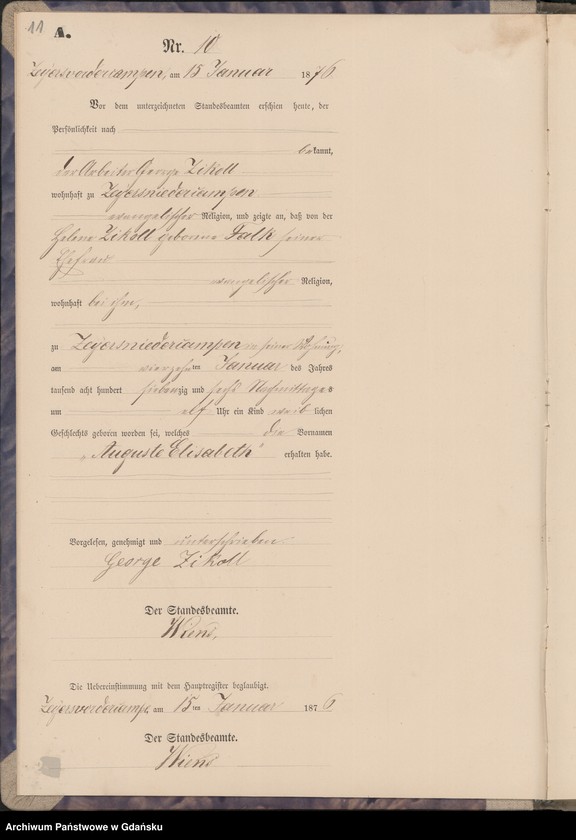 11
A.
Nr. 10
Zeyersvordercampen, am 15 Januar 1876
Vor dem unterzeichneten Standesbeamten erschien heute, der
Persönlichkeit nach
bekannt,
der Arbeiter George Zikoll
wohnhaft zu Zeyersniedercampen
evangelischer Religion, und zeigte an, daß von der
Helene Zikoll geborene Falk seiner
Ehefrau
evangelischer Religion,
wohnhaft bei ihm,
zu Zeyersniedercampen in seiner Wohnung,
am vierzehnten Januar des Jahres
tausend acht hundert siebenzig und sechs Nachmittags
um elf Uhr ein Kind weiblichen
Geschlechts geboren worden sei, welches die Vornamen
„Auguste Elisabeth“ erhalten habe.
Vorgelesen, genehmigt und unterschrieben
George Zikoll
Der Standesbeamte.
Wiens.
Die Uebereinstimmung mit dem Hauptregister beglaubigt.
Zeyersvordercampe, am 15ten Januar 1876
Der Standesbeamte.
Wiens
Archiwum Państwowe w Gdańsku